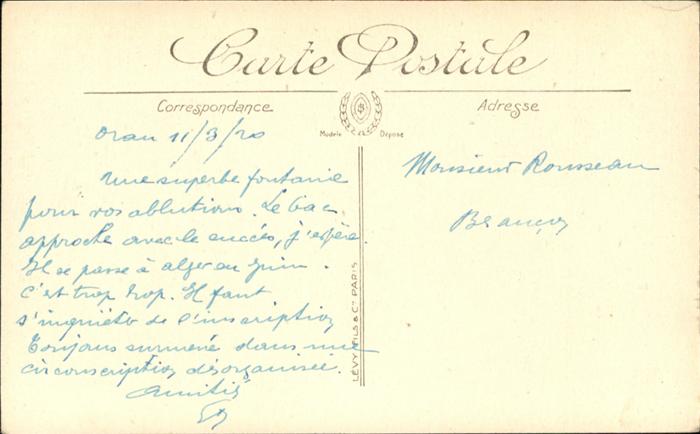 Carte Postale
Correspondance
Adresse
Modèle Déposé
Oran 11/3/20
Une superbe fontaine
pour vos ablutions. Le bac
approche avec le succès, j'espère.
Il se passe à alger en Juin.
C'est trop trop. Il faut
s'inquiéter de l'inscription
Toujours surmené dans une
circonscription désorganisée.
Amitié
Monsieur Rousseau
LÉVY FILS & Cie PARIS